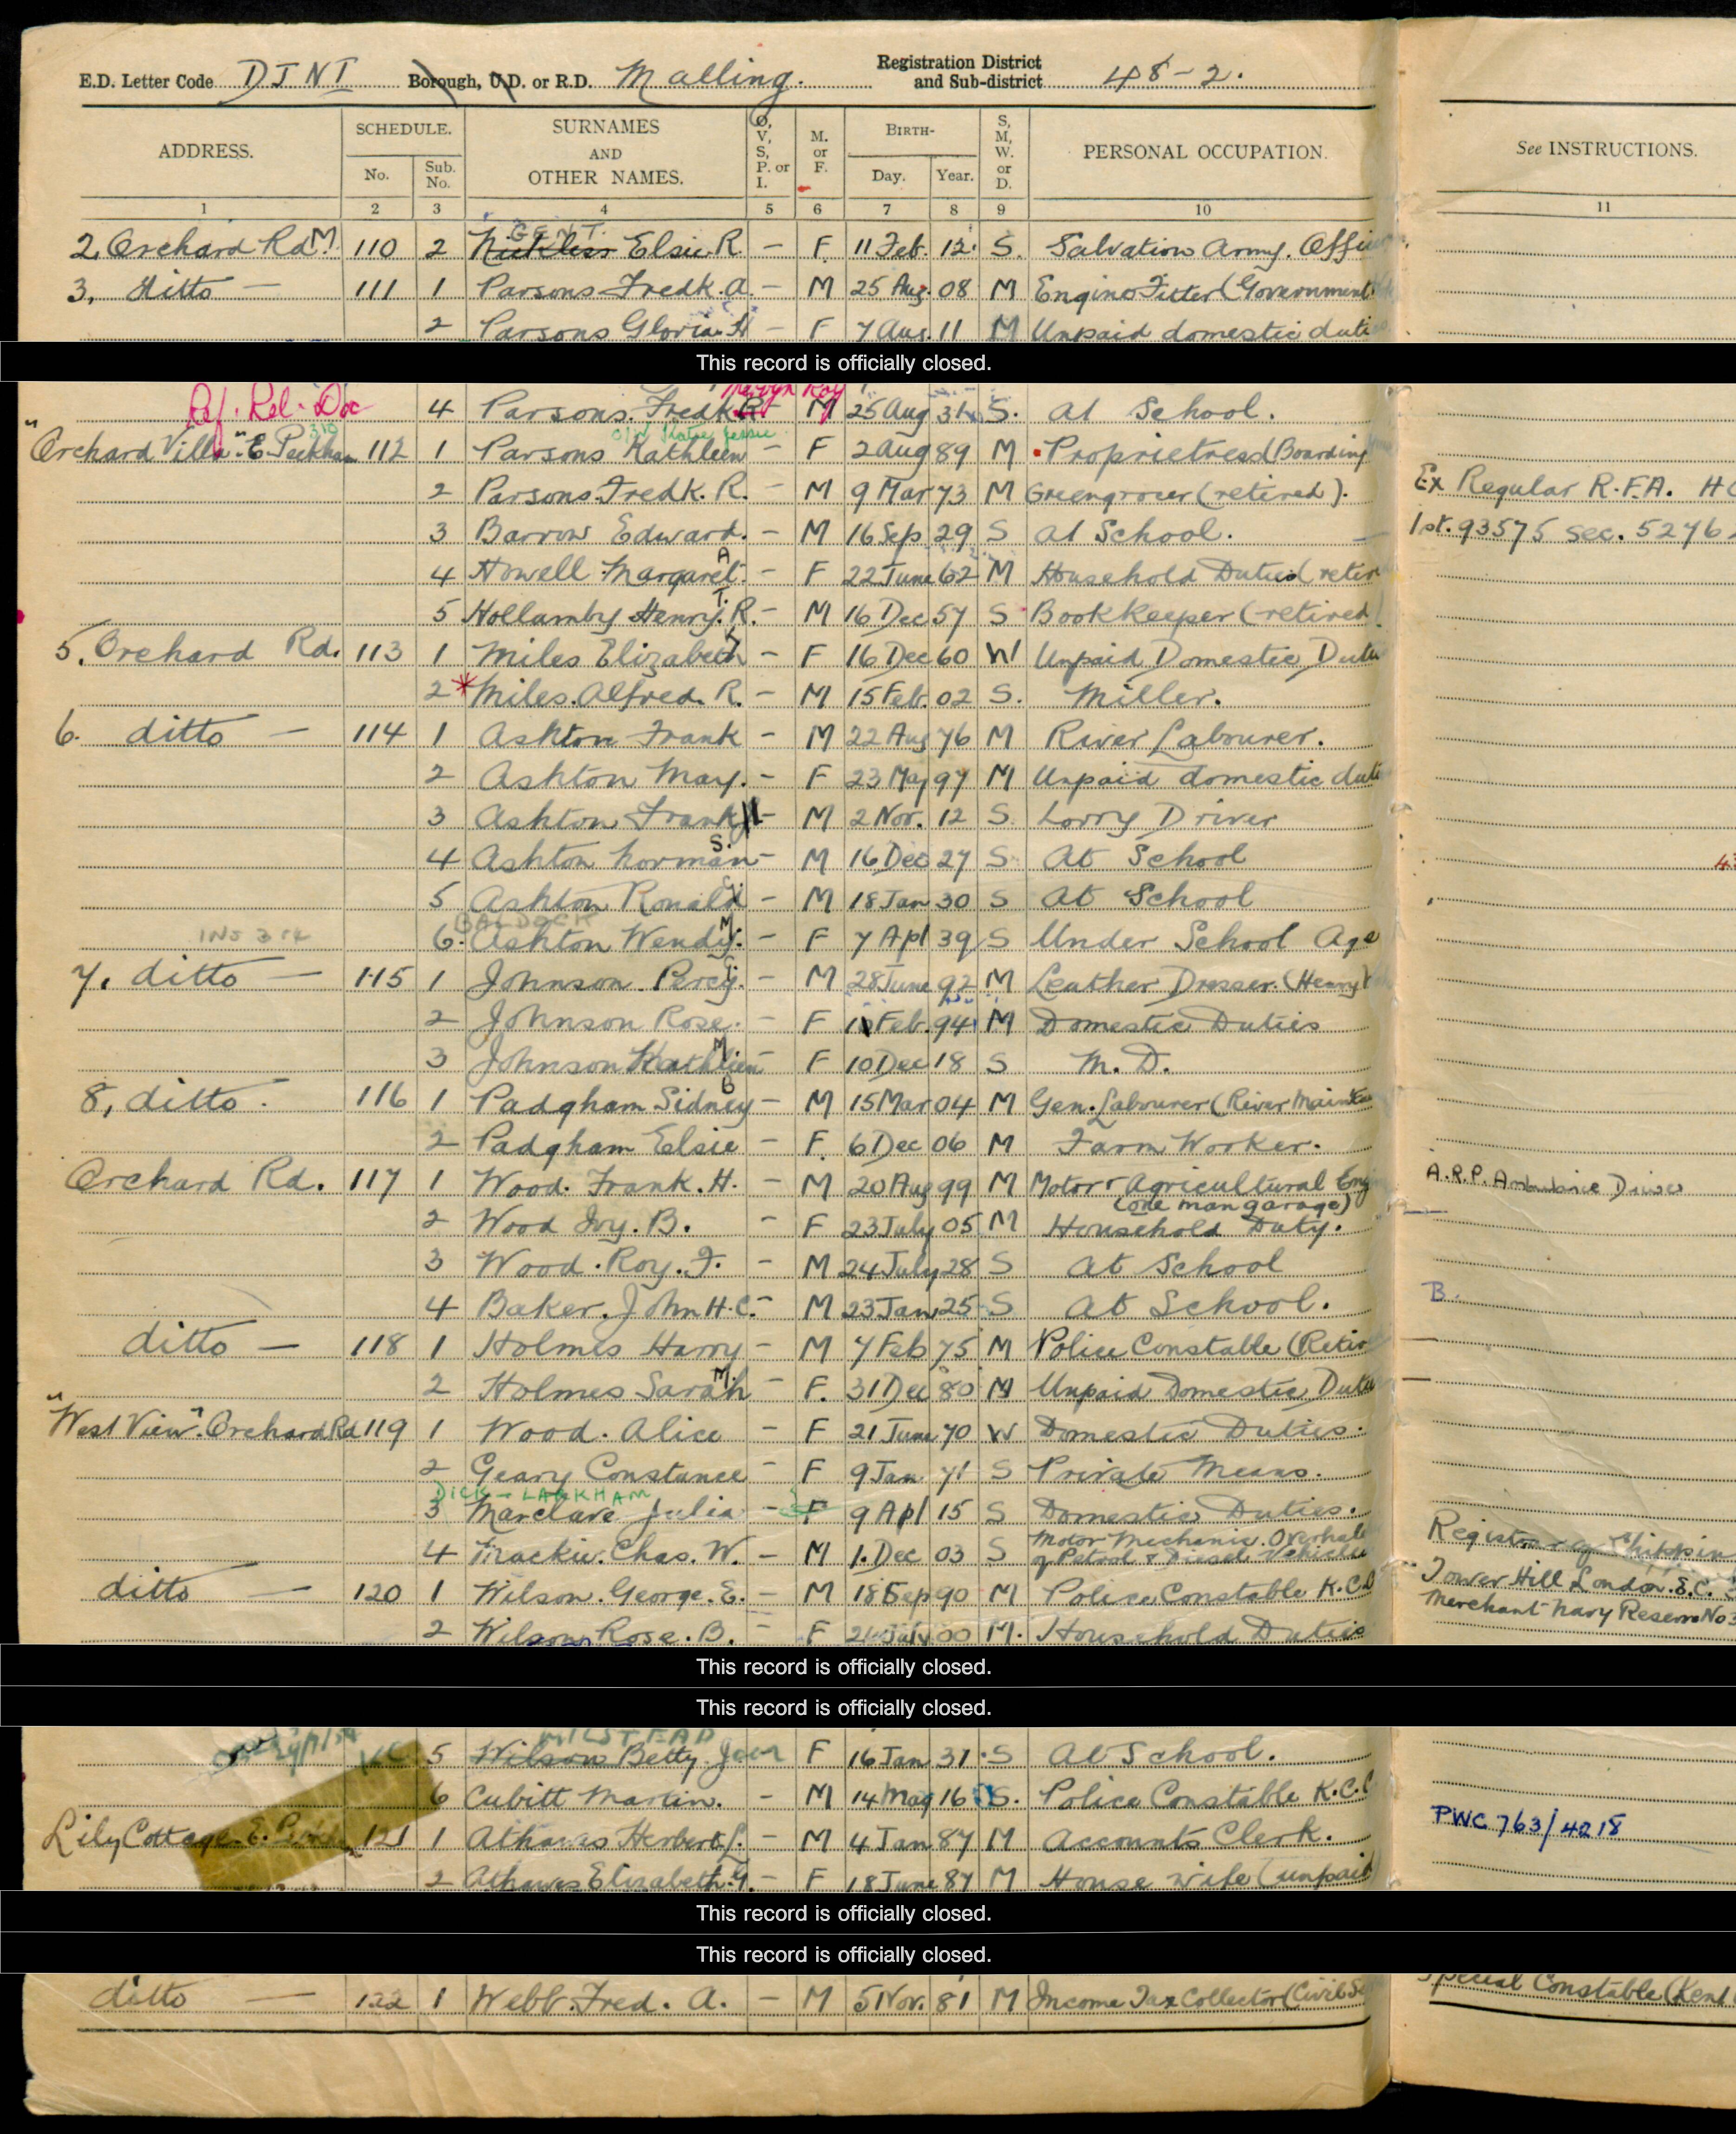 E.D. Letter Code DJNI Borough, U.D. or R.D. Malling. Registration District and Sub-district 48-2.
ADDRESS. SCHEDULE. No. Sub. No. SURNAMES AND OTHER NAMES. O, V, S, P. or I. M. or F. BIRTH- Day. Year. S, M, W. or D. PERSONAL OCCUPATION. See INSTRUCTIONS.
1 2 3 4 5 6 7 8 9 10 11
GENT.
2, Orchard Rd M. 110 2 Nickless Elsie R - F. 11 Feb. 12. S. Salvation Army. Offi
3, ditto — 111 1 Parsons Fredk. A. - M 25 Aug. 08 M Engine Fitter (Government
2 Parsons Gloria - F 7 Aug. 11 M Unpaid domestic duti
This record is officially closed.
Ref. Rel. Doc
4 Parsons. Fredk M 25 Aug 31 S. At School.
"Orchard Villa". E. Peckham 112 1 Parsons Kathleen - F 2 Aug 89 M Proprietress (Boarding
2 Parsons Fredk. R. - M 9 Mar 73 M Greengrocer (retired). Ex Regular R.F.A.
3 Barrow Edward. - M 16 Sep 29 S At School. 1st. 93575 sec. 5276
4 Howell Margaret A - F 22 June 62 M Household Duties (retir
5 Hollamby Henry T. R. - M 16 Dec 57 S Bookkeeper (retired)
5, Orchard Rd. 113 1 Miles Elizabeth - F 16 Dec 60 W Unpaid Domestic Duti
2 * Miles. Alfred. R. - M 15 Feb. 02 S. Miller.
6. ditto — 114 1 Ashton Frank - M 22 Aug 76 M River Labourer.
2 Ashton May. - F 23 May 97 M Unpaid domestic duti
3 Ashton Frank - M 2 Nov. 12 S. Lorry Driver
4 Ashton Norman S. - M 16 Dec 27 S At School
5 Ashton Ronald - M 18 Jan 30 S At School
BALDOCK
6. Ashton Wendy M. - F 7 Apl 39 S Under School Age
7. ditto — 115 1 Johnson Percy. - M 28 June 92 M Leather Dresser. (Henry
2 Johnson Rose. - F Feb. 94 M Domestic Duties
3 Johnson Kathleen M. - F 10 Dec 18 S M. D.
8, ditto. 116 1 Padgham Sidney B - M 15 Mar 04 M Gen. Labourer (River Mainten
2 Padgham Elsie - F. 6 Dec 06 M Farm Worker.
Orchard Rd. 117 1 Wood. Frank. H. - M 20 Aug 99 M Motor & Agricultural Eng A.R.P. Ambulance Driver
(one man garage)
2 Wood Ivy. B. - F 23 July 05 M Household Duty.
3 Wood. Roy. F. - M 24 July 28 S At School
4 Baker. John H. C. - M 23 Jan 25 S At School. B.
ditto — 118 1 Holmes Harry - M 7 Feb 75 M Police Constable (Retir
2 Holmes Sarah M. - F. 31 Dec 80 M Unpaid Domestic Duti
"West View". Orchard Rd 119 1 Wood. Alice - F 21 June 70 W Domestic Duties.
2 Geary Constance - F 9 Jan 71 S Private Means.
DICK - LARKHAM
3 Marclare Julia - F 9 Apl 15 S Domestic Duties.
4 Mackie. Chas. W. - M 1. Dec 03 S Motor Mechanic. Overhal Register of Shippin
of Petrol & Diesel Vehicles
ditto — 120 1 Wilson. George. E. - M 18 Sep 90 M Police Constable K.C.C Tower Hill London. E.C.
Merchant Navy Reserve No
2 Wilson Rose. B. - F 00 M. Household Duties
This record is officially closed.
This record is officially closed.
MILSTEAD
5 Wilson Betty. Jean F 16 Jan 31 S At School.
6 Cubitt Martin. - M 14 May 16 S. Police Constable K.C.C
Lily Cottage. E. 121 1 Athawes Herbert L. - M 4 Jan 87 M Accounts Clerk. PWC 763/4218
2 Athawes Elizabeth. G. - F 18 June 87 M House wife (unpaid)
This record is officially closed.
This record is officially closed.
ditto — 122 1 Webb. Fred. A. - M 5 Nov. 81 M Income Tax Collector (Civil Se Special Constable (Kent